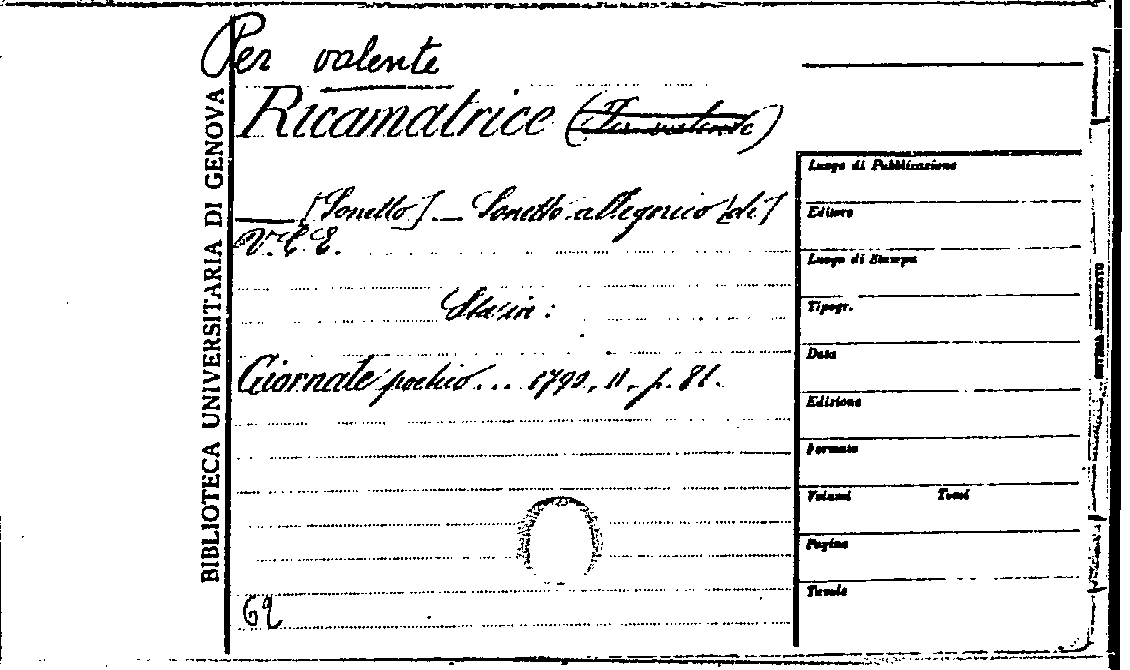 Per valente
Ricamatrice (Per valente)
— [Sonetto] — Sonetto allegorico [di]
V. C. E.
Sta in:
Giornale poetico... 1792, II, p. 81.
62
BIBLIOTECA UNIVERSITARIA DI GENOVA
Luogo di Pubblicazione
Editore
Luogo di Stampa
Tipogr.
Data
Edizione
Formato
Volumi Tomi
Pagine
Tavole